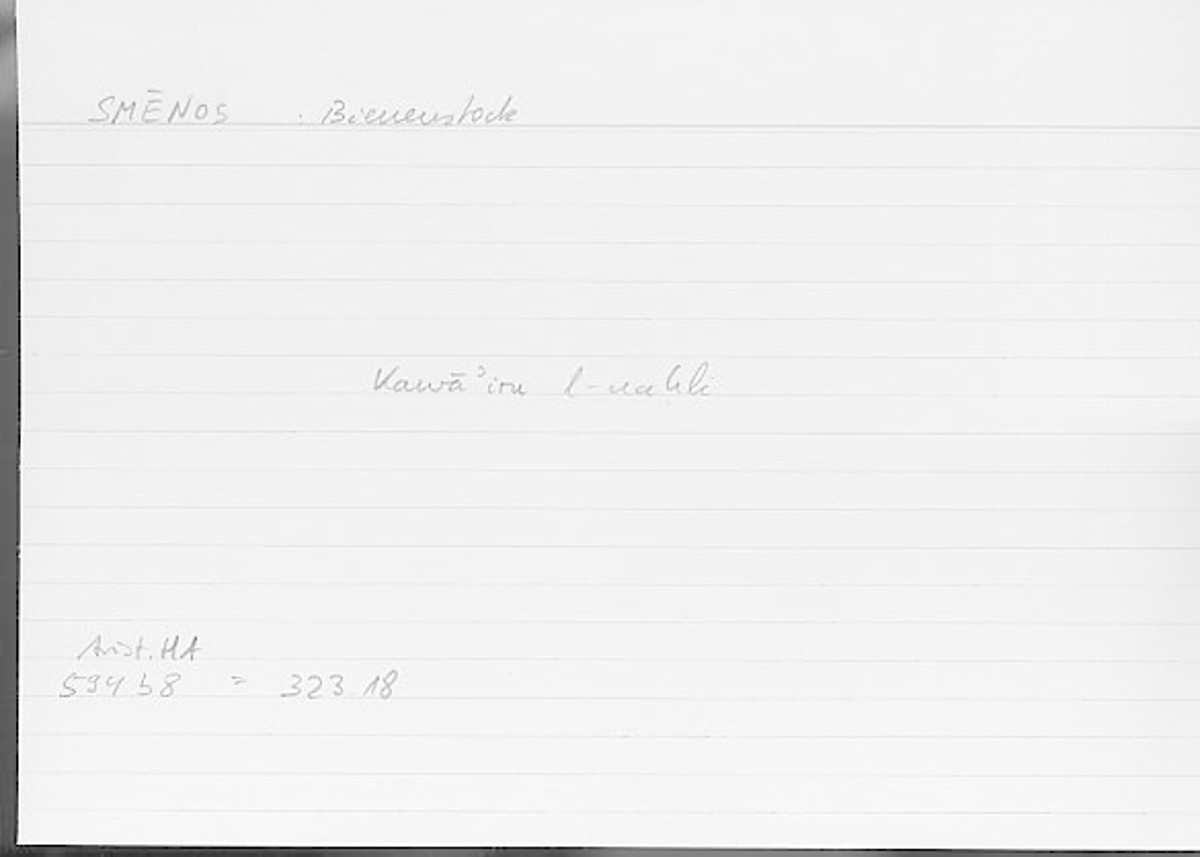 SMĒNOS : Bienenstock
Kawāʾiru l-naḥli
Arist. HA
594 b8 = 323.18